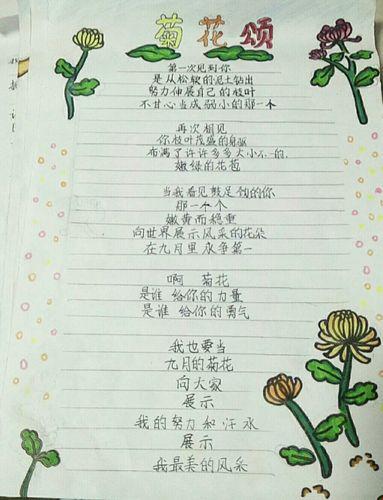 菊花颂
第一次见到你
是从松软的泥土钻出
努力伸展自己的枝叶
不甘心当成弱小的那一个
再次相见
你枝叶茂盛的身躯
布满了许许多多大小不一的
嫩绿的花苞
当我看见鼓足劲的你
那一个个
嫩黄而稳重
向世界展示风采的花朵
在九月里 永争第一
啊 菊花
是谁 给你的力量
是谁 给你的勇气
我也要当
九月的菊花
向大家
展示
我的努力和汗水
展示
我最美的风采